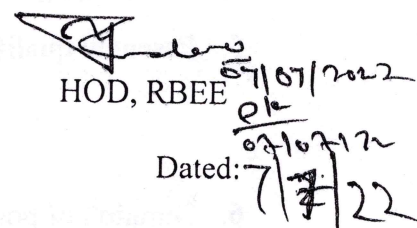 07/07/2022
HOD, RBEE
07/07/22
Dated: 7/7/22